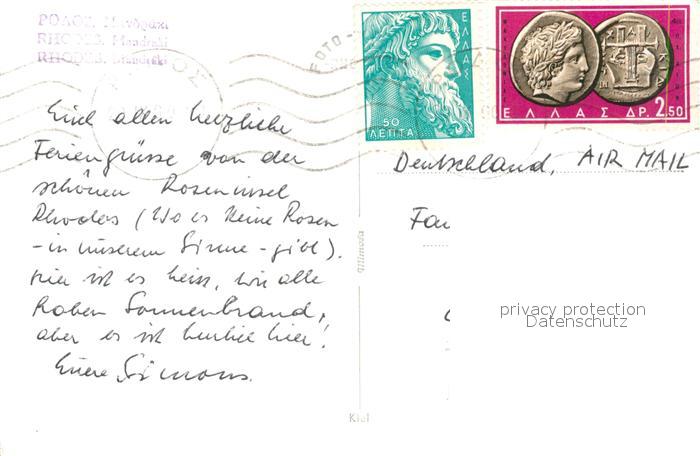 ΡΟΔΟΣ, Μανδράκι
RHODES, Mandraki
RHODES, Mandraki
50
ΛΕΠΤΑ
ΕΛΛΑΣ
ΕΛΛΑΣ ΔΡ. 2.50
Euch allen herzliche
Feriengrüsse von der
schönen Roseninsel
Rhodos (Wo es keine Rosen
- in unserem Sinne - gibt).
Hier ist es heiss, wir alle
haben Sonnenbrand,
aber es ist herrlich hier!
Euere Simons.
Deutschland, AIR MAIL
Fa
privacy protection
Datenschutz
Kiel